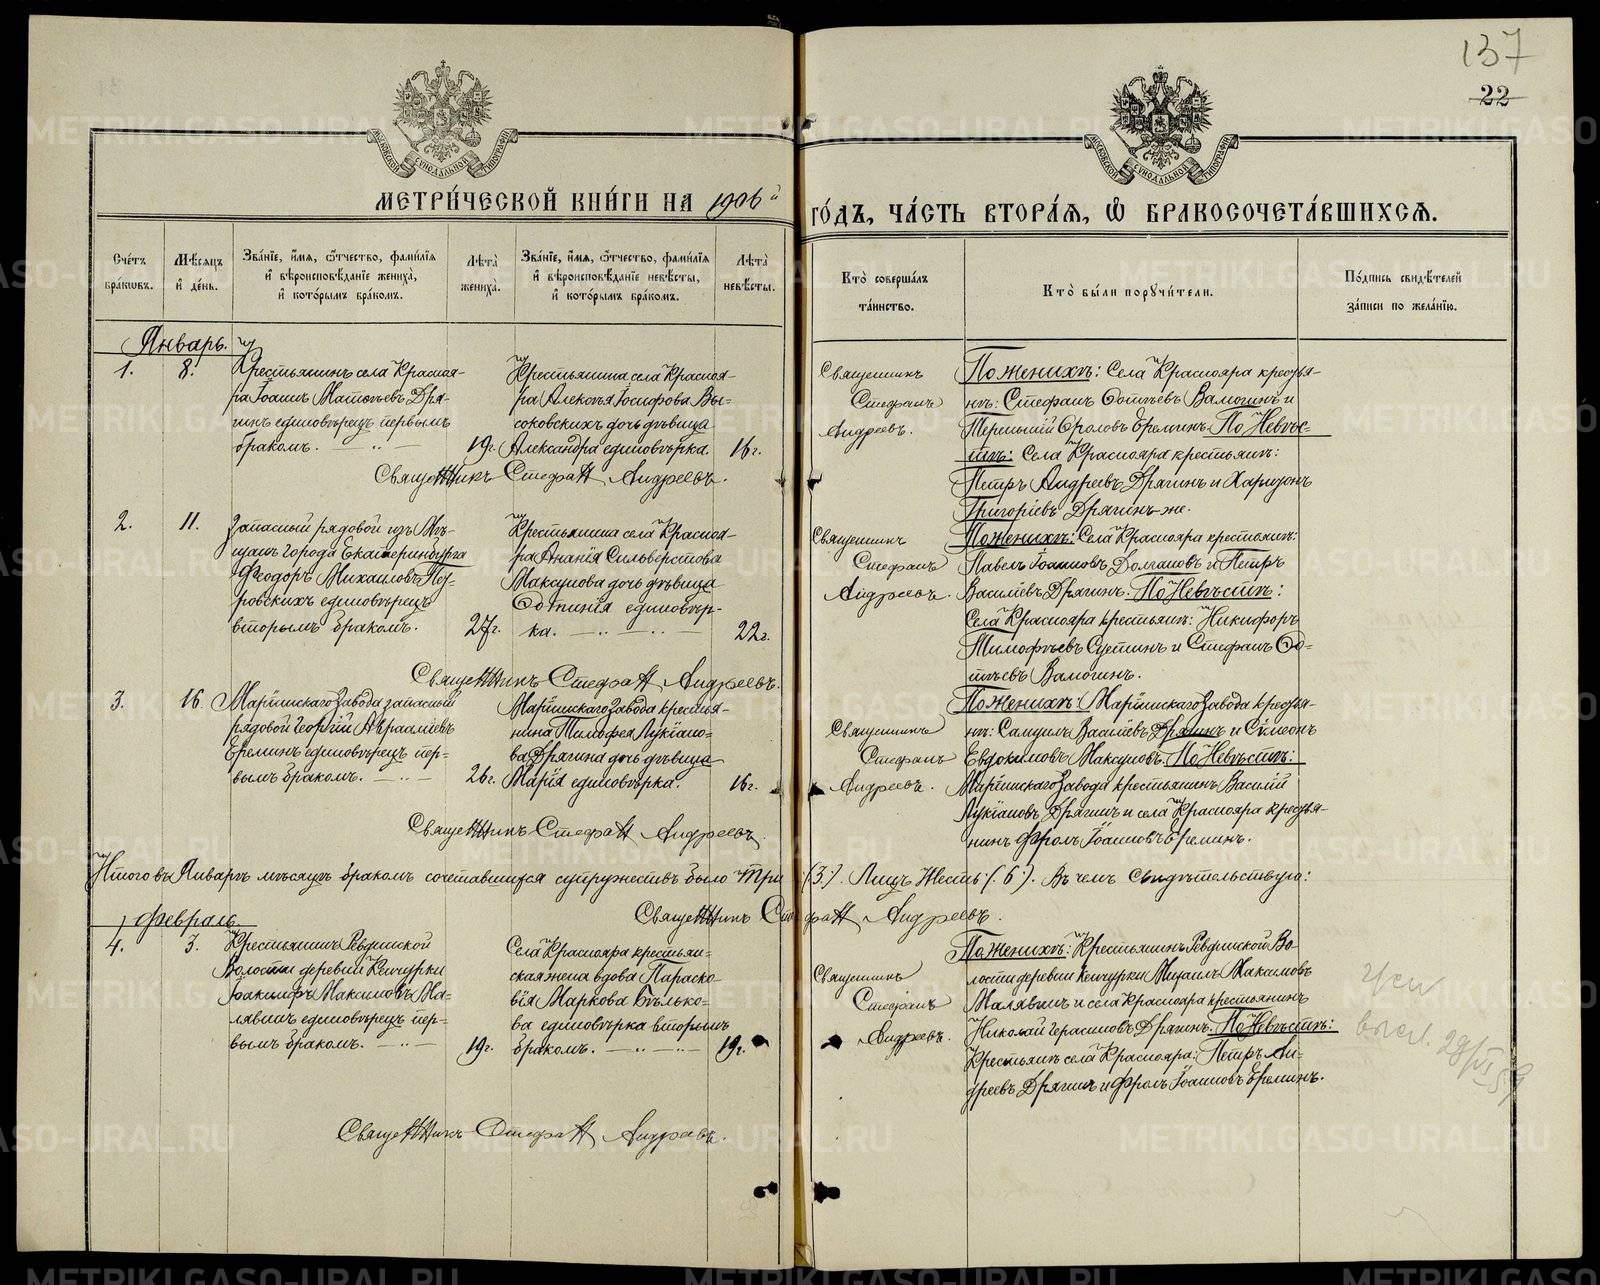 137
22
МЕТРИ́ЧЕСКОЙ КНИ́ГИ НА 1906й
ГО́ДЪ, ЧА́СТЬ ВТОРА́Я, Ѡ҆ БРАКОСОЧЕТА́ВШИХСЯ.
Сче́тъ бра́кѡвъ.
Мѣ́сяцъ и҆ де́нь.
Зва́нїе, и҆́мя, ѻ҆́тчество, фами́лїя и҆ вѣроисповѣ́данїе жениха̀, и҆ кото́рымъ бра́комъ.
Лѣта̀ жениха̀.
Зва́нїе, и҆́мя, ѻ҆́тчество, фами́лїя и҆ вѣроисповѣ́данїе невѣ́сты, и҆ кото́рымъ бра́комъ.
Лѣта̀ невѣ́сты.
Кто̀ соверша́лъ та́инство.
Кто̀ бы́ли поручи́тели.
По́дпись свидѣ́телей за́писи по жела́нїю.
Январь.
1.
8.
Крестьянинъ села Краснoя-
ра Іоаннъ Матѳѣевъ Дря-
гинъ единовѣрецъ первымъ
бракомъ.
19г.
Крестьянина села Краснoя-
ра Алексѣя Іосифова Вы-
соковскихъ дочь дѣвица
Александра единовѣрка.
16г.
Священникъ
Стефанъ
Андреевъ.
По женихѣ: Села Краснояра крестья-
нѣ: Стефанъ Фотіевъ Валогинъ и
Терентій Фроловъ Ереминъ. По Невѣс-
тѣ: Села Краснояра крестьяне:
Петръ Андреевъ Дрягинъ и Харитонъ
Григоріевъ Дрягинъ-же.
Священникъ Стефанъ Андреевъ.
2.
11.
Запасный рядовой изъ Мѣ-
щанъ города Екатеринбурга
Феодоръ Михаиловъ Пет-
ровскихъ единовѣрецъ
вторымъ бракомъ.
27г.
Крестьянина села Краснoя-
ра Ананія Сильверстова
Максимова дочь дѣвица
Фотинія единовѣр-
ка.
22г.
Священникъ
Стефанъ
Андреевъ.
По женихѣ: Села Краснояра крестьяне:
Павелъ Іоанновъ Долгановъ и Петръ
Василіевъ Дрягинъ. По Невѣстѣ:
Села Краснояра крестьяне: Никифоръ
Тимофѣевъ Сустинъ и Стефанъ Фо-
тіевъ Валогинъ.
Священникъ Стефанъ Андреевъ.
3.
16.
Маріинскаго Завода запасный
рядовой Георгій Авраамiевъ
Ереминъ единовѣрецъ пер-
вымъ бракомъ.
26г.
Маріинскаго Завода крестья-
нина Тимофея Лукіано-
ва Дрягина дочь дѣвица
Марія единовѣрка.
16г.
Священникъ
Стефанъ
Андреевъ.
По женихѣ: Маріинскаго Завода крестья-
нѣ: Самуилъ Василіевъ Дрягинъ и Симеонъ
Евдокимовъ Максимовъ. По Невѣстѣ:
Маріинскаго Завода крестьянинъ Василій
Лукіановъ Дрягинъ и села Краснояра крестья-
нинъ Фролъ Іоанновъ Ереминъ.
Священникъ Стефанъ Андреевъ.
Итого въ Январѣ мѣсяцѣ бракомъ сочетавшихся супружествъ было три (3.). Лицъ Шесть (6.). Въ чемъ Свидѣтельствую:
Священникъ Стефанъ Андреевъ.
Февраль.
4.
3.
Крестьянинъ Ревдинской
Волости деревни Кенчурки
Іоакимфъ Максимовъ Ма-
лявинъ единовѣрецъ пер-
вымъ бракомъ.
19г.
Села Краснояра крестьян-
ская жена вдова Параско-
вія Маркова Бѣлько-
ва единовѣрка вторымъ
бракомъ.
19г.
Священникъ
Стефанъ
Андреевъ.
По женихѣ: Крестьянинъ Ревдинской Во-
лости деревни Кенчурки Михаилъ Максимовъ
Малявинъ и села Краснояра крестьянинъ
Николай Герасимовъ Дрягинъ. По Невѣстѣ:
Крестьяне села Краснояра: Петръ Ан-
дреевъ Дрягинъ и Фролъ Іоанновъ Ереминъ.
Священникъ Стефанъ Андреевъ.
METRIKI.GASO-URAL.RU